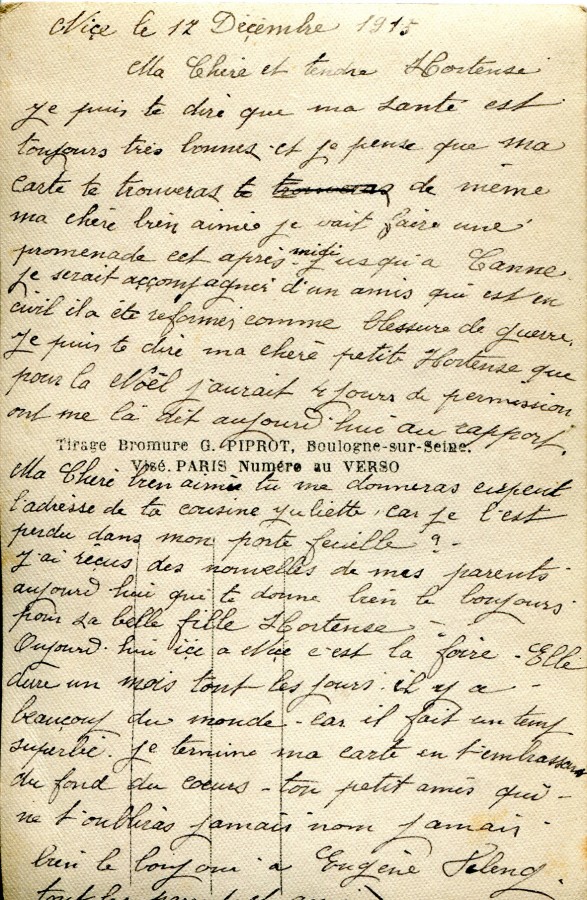 Niçe le 12 Deçembre 1915
Ma Cheré et tendre Hortense
je puis te diré que ma santé est
toujours très bonnes et je pense que ma
carte te trouveras te trouveras de même
ma chéré bien aimée je vait faire une
promenade cet après midi jusqu'a Canne
je serait accompagner d'un amis qui est en
civil il a été reformer comme blessure de guerre.
je puis te diré ma cheré petite Hortense que
pour la Nöél j'aurait 4 jours de permission
ont me là dit aujourd'hui au rapport.
Tirage Bromure G. PIPROT, Boulogne-sur-Seine.
Visé. PARIS Numéro au VERSO
Ma Cheré bien aimée tu me donneras
l'adresse de ta cousine Juliette car je l'est
perdu dans mon porte feuille ?
j'ai reçus des nouvelles de mes parents
aujourd'hui qui te donne bien le bonjours
pour sa belle fille Hortense
Oujourd'hui içi a Niçe c'est la foire - Elle
dure un mois tout les jours il y a
beaucoup du monde - car il fait un temp
superbe. je termine ma carte en t'embrassant
du fond du coeurs - ton petit amis qui
ne t'oubliras jamais nom jamais
bien le bonjour a Eugène
tout les